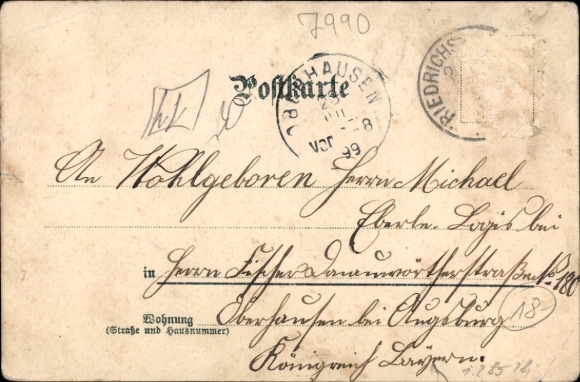 7990
Postkarte
OBERHAUSEN
VOR
99
An Wohlgeboren Herrn Michael
Eberle. Logis bei
in Herrn Fischer Donauwörtherstraße No 180
Wohnung
(Straße und Hausnummer)
Oberhausen bei Augsburg
18-
Königreich Bayern.